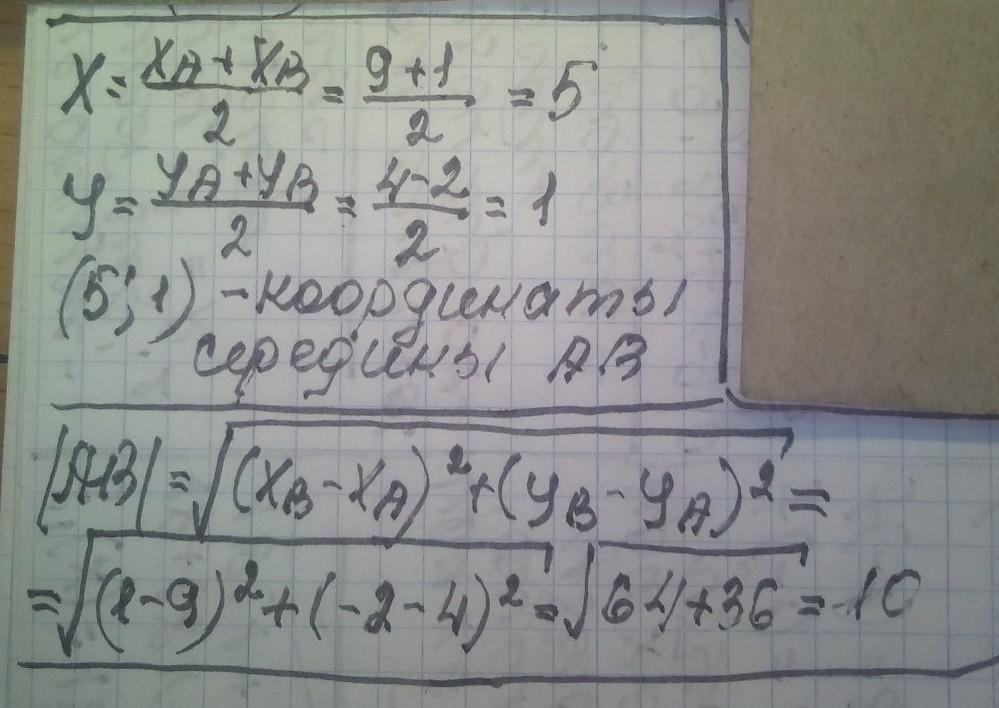 X = (XA + XB)/2 = (9 + 1)/2 = 5
y = (yA + yB)/2 = (4 - 2)/2 = 1
(5; 1) - координаты
середины AB
|AB| = √((XB - XA)² + (yB - yA)²) =
= √((1 - 9)² + (-2 - 4)²) = √(64 + 36) = 10